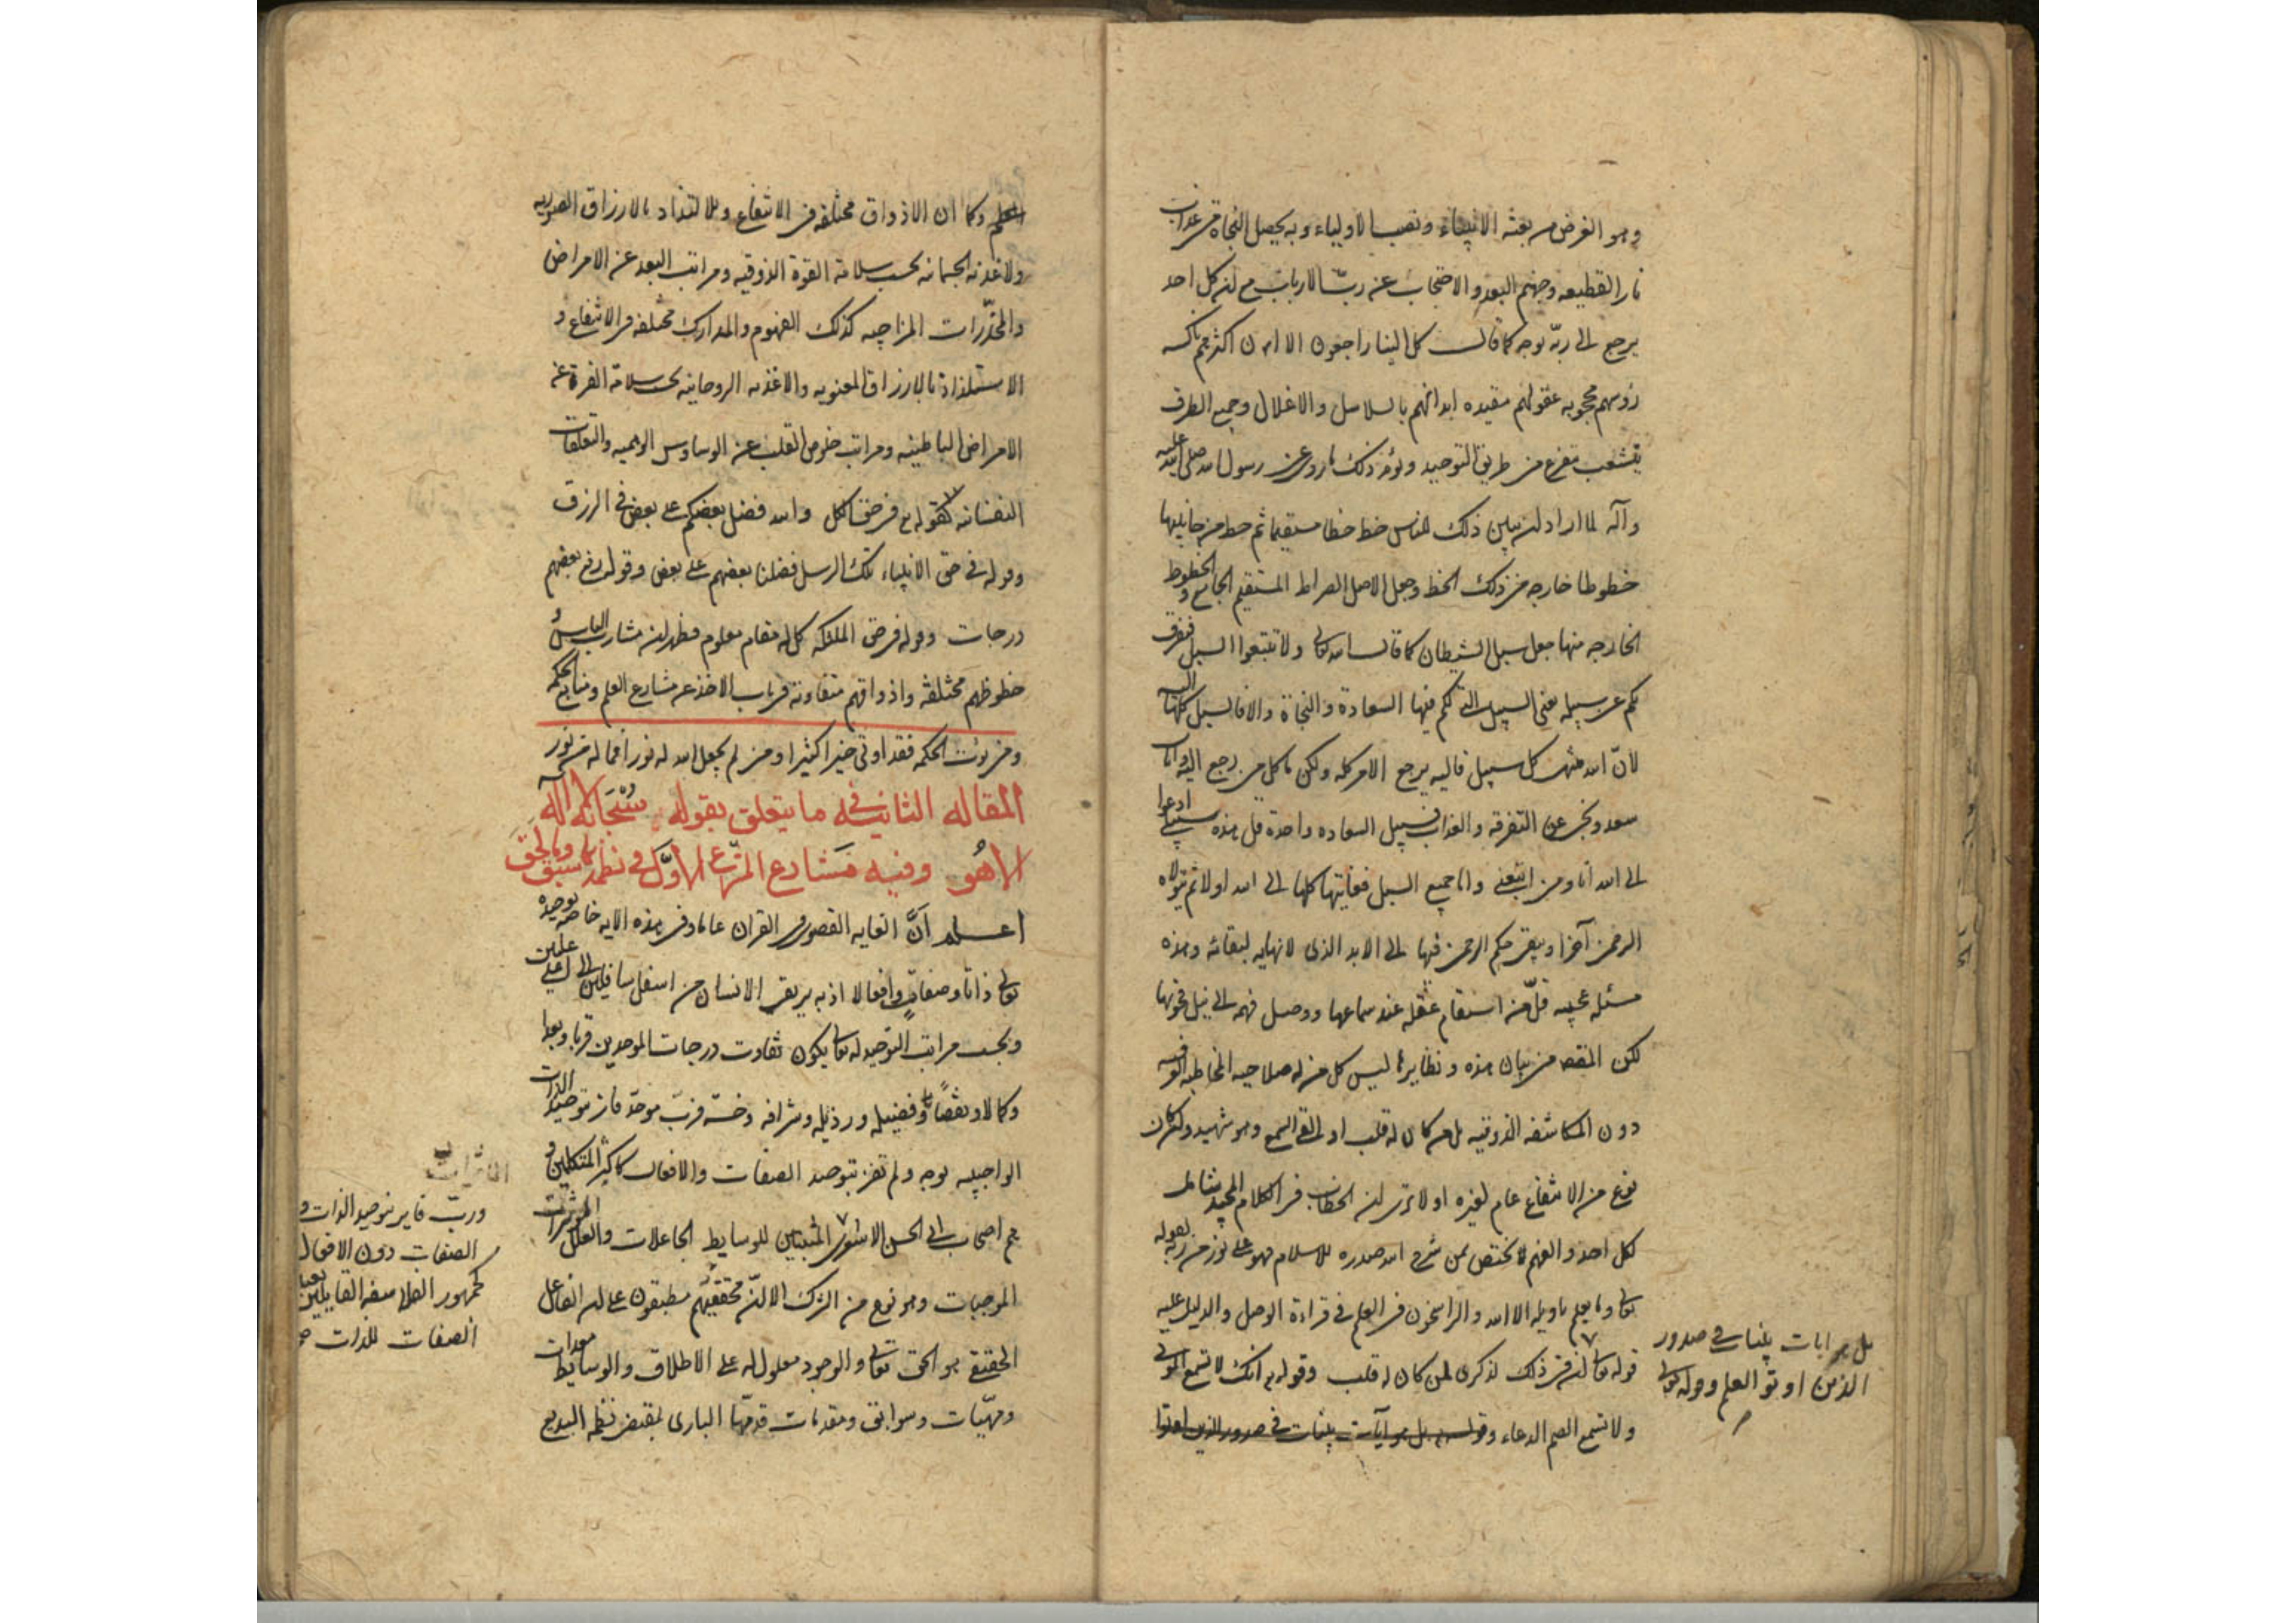 وهو الغرض من بعثه الانبياء ونصب الاولياء وبه يحصل النجاة من عذاب
نار القطيعه وجهنم البعد والاحتجاب عن ربّ الارباب مع ان كل احد
يرجع الى ربّه بوجه كما قال كل الينا راجعون الا ان اكثرهم ناكسه
رؤسهم محجوبه عقولهم مقيده ابدانهم بالسلاسل والاغلال وجميع الطرق
يتشعب يتفرع من طريق التوحيد ويؤيد ذلك ما روى عن رسول الله صلى الله عليه
وآله لما اراد ان يبين ذلك للناس خط خطا مستقيما ثم خط من جانبيها
خطوطا خارجه من ذلك الخط وجعل الاصل الصراط المستقيم الجامع والخطوط
الخارجه منها جعل سبل الشيطان كما قال الله تعالى ولا تتبعوا السبل فتفرق
بكم عن سبيله يعنى السبيل التى لكم فيها السعادة والنجاة والا فالسبل كلها اليه
لانّ الله منتهى كل سبيل فاليه يرجع الامر كله ولكن ما كل من رجع اليه
سعد ونجى عن التفرقه والعذاب فسبيل السعاده واحدة قل هذه سبيلى ادعوا
الى الله انا ومن اتبعنى واما جميع السبل فغايتها كلها الى الله اولا ثم يتولاه
الرحمن آخرا ويبقى حكم الرحمن فيها الى الابد الذى لا نهايه لبقائه وهذه
مسئله عجيبه قلّ من استقام عقله عند سماعها ووصل فهمه الى نيل فحوتها
لكن المقصد من بيان هذه ونظايرها ليس كل من له صلاحيه المخاطبه
دون المكاشفه الذوقيه بل من كان له قلب او القى السمع وهو شهيد وان كان
نوع من الانتفاع عام لغيره اولا ترى ان الخطاب فى الكلام المجيد شامل
لكل احد والفهم لا يختص لمن شرح الله صدره للاسلام فهو على نور من ربه لقوله
تعالى وما يعلم تاويله الا الله والراسخون فى العلم فى قراءة الوصل والدليل عليه
قوله تعالى ان فى ذلك لذكرى لمن كان له قلب وقوله انك لا تسمع الموتى
ولا تسمع الصم الدعاء وقوله بل هو آيات بينات فى صدور الذين اوتوا
بل هو ايات بينات فى صدور
الذين اوتو العلم وقوله تعالى
العلم وكما ان الاذواق مختلفه فى الانتفاع والالتذاد بالارزاق الصوريه
والاغذيه الجسمانيه بحسب سلامة القوة الذوقيه ومراتب البعد عن الامراض
والمخدّرات المزاجيه كذلك الفهوم والمدارك مختلفه فى الانتفاع و
الاستلذاذ بالارزاق المعنويه والاغذيه الروحانيه بحسب سلامة الفطرة عن
الامراض الباطنيه ومراتب خلوص القلب عن الوساوس الوهميه والتعلقات
النفسانيه فقوله فى حق الكل والله فضل بعضكم على بعض فى الرزق
وقوله فى حق الانبياء تلك الرسل فضلنا بعضهم على بعض وقوله رفع بعضهم
درجات وقوله فى حق الملئكه كل له مقام معلوم فظهر ان مشارب الناس
حظوظهم مختلفه واذواقهم متفاوتة فى باب الاخذ عن مشارع العلم ومنابع الحكم
ومن يؤت الحكمه فقد اوتى خيرا كثيرا ومن لم يجعل الله له نورا فما له من نور
المقاله الثانيه فى ما يتعلق بقوله سبحانه لا اله
الا هو وفيه مشارع المشرع الاوّل فى نظمه بما سبق وما لحق
اعلم انّ الغايه القصوى فى القران عاما وفى هذه الايه خاصه توحيده
تعالى ذاتا وصفات وافعالا اذ به يرتقى الانسان من اسفل سافلين الى اعلى عليين
وبحسب مراتب التوحيد له تعالى يكون تفاوت درجات الموحدين قربا وبعدا
وكمالا ونقصانا وفضيله ورذيله وشرافه وخسّه فربّ موحّد فاز بتوحيد الذات
الواجبيه بوجه ولم تفز بتوحيد الصفات والافعال كاكثر المتكلمين و
هم اصحاب ابى الحسن الاشعرى المثبتين للوسايط الجاعلات والعلل المؤثرات
الموجبات وهو نوع من الشرك الا انّ محققيهم مطبقون على ان الفاعل
الحقيقى هو الحق تعالى والوجود معلول له على الاطلاق والوسايط معدات
ومهيّات وسوابق ومقدمات قدمتها البارى بمقتضى نظمه البديع
وربّ فايز بتوحيد الذات و
الصفات دون الافعال
كجمهور الفلاسفه القايلين بعينيه
الصفات للذات